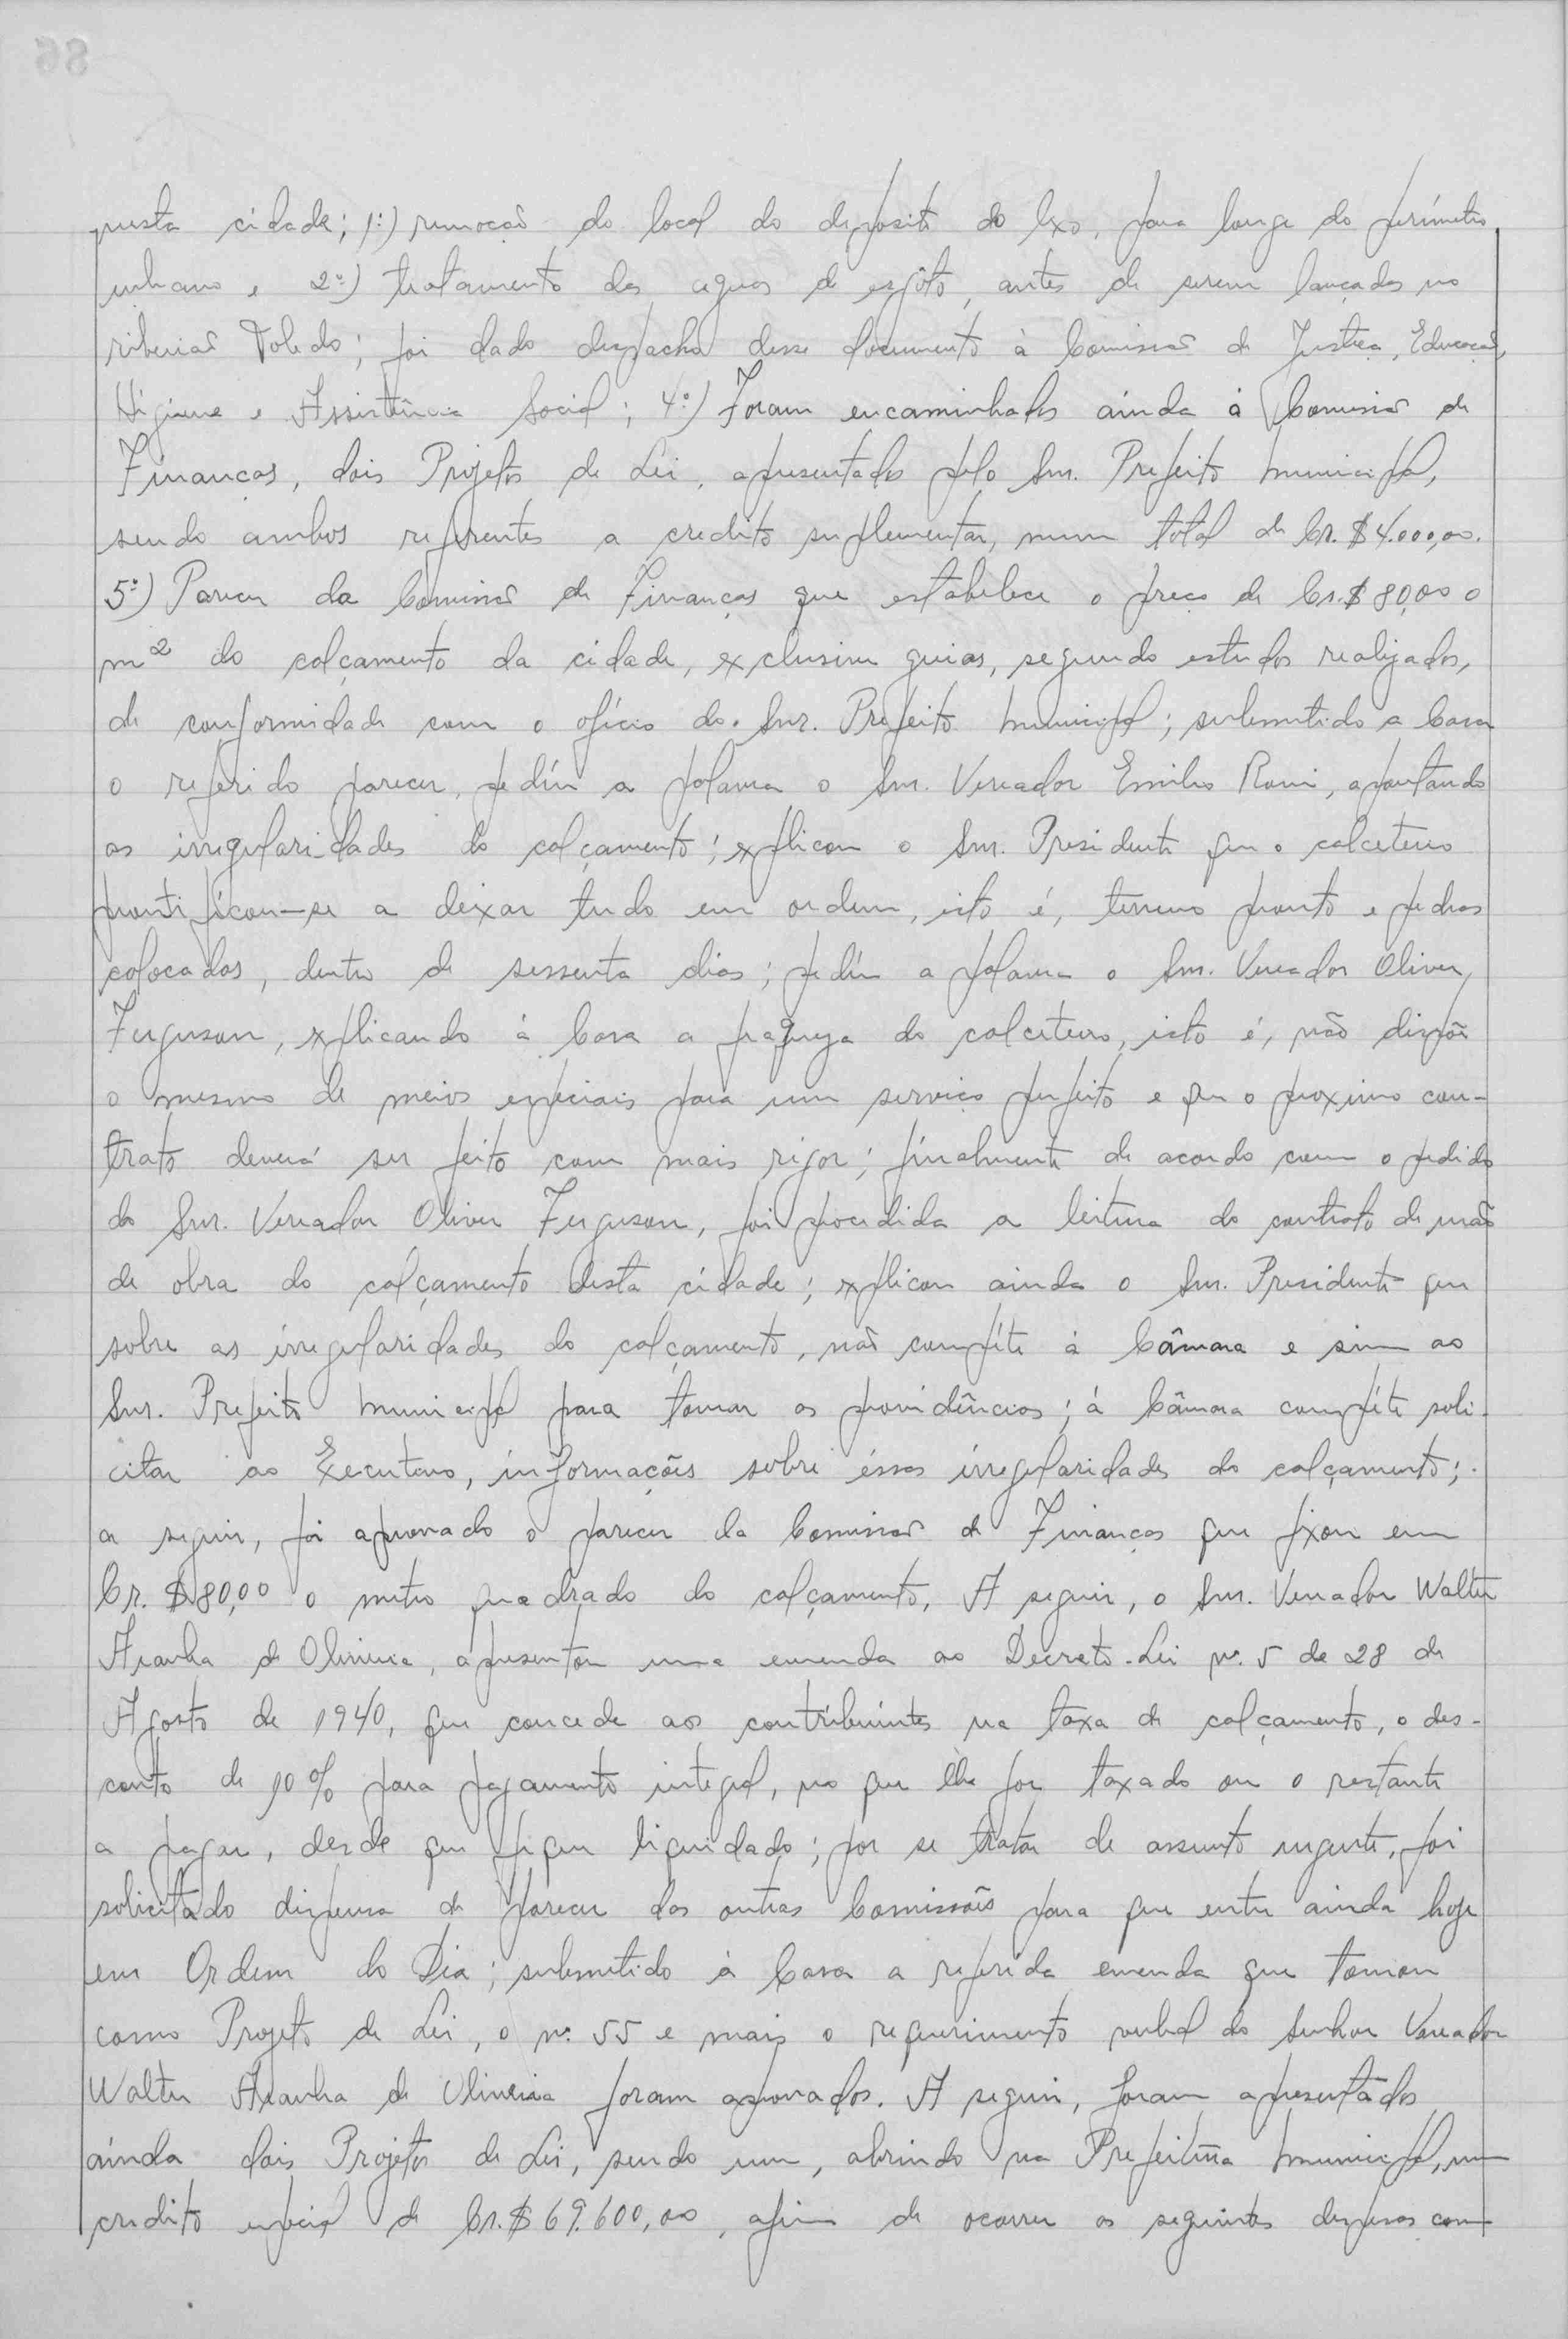 nesta cidade; 1º) remoção do local do deposito do lixo, para longe do perímetro
urbano e 2º) tratamento das aguas de esgôto, antes de serem lançadas no
ribeirão Toledo; foi dado despacho desse documento à Comissão de Justiça, Educação,
Higiene e Assistência Social; 4º) Foram encaminhados ainda à Comissão de
Finanças, dois Projetos de Lei, apresentados pelo Snr. Prefeito Municipal,
sendo ambos referentes a credito suplementar, num total de Cr.$4.000,00.
5º) Parecer da Comissão de Finanças que estabelece o preço de Cr.$80,00 o
m² do calçamento da cidade, exclusive guias, segundo estudos realizados,
de conformidade com o ofício do Snr. Prefeito Municipal; submetido a Casa
o referido parecer, pediu a palavra o Snr. Vereador Emilio Romi, apontando
as irregularidades do calçamento; explicou o Snr. Presidente que o calceteiro
prontificou-se a deixar tudo em ordem, isto é, terreno pronto e pedras
colocadas, dentro de sessenta dias; pediu a palavra o Snr. Vereador Oliver
Ferguson, explicando à Casa a fraqueza do calceteiro, isto é, não dispõe
o mesmo de meios especiais para um serviço perfeito e que o proximo con-
trato deverá ser feito com mais rigor; finalmente de acordo com o pedido
do Snr. Vereador Oliver Ferguson, foi procedida a leitura do contrato de mão
de obra do calçamento desta cidade; explicou ainda o Snr. Presidente que
sobre as irregularidades do calçamento, não compéte à Câmara e sim ao
Snr. Prefeito Municipal para tomar as providências; á Câmara compéte soli-
citar ao Executivo, informações sobre éssas irregularidades do calçamento;
a seguir, foi aprovado o parecer da Comissão de Finanças que fixou em
Cr.$80,00 o metro quadrado do calçamento. A seguir, o Snr. Vereador Walter
Aranha de Oliveira, apresentou uma emenda ao Decreto-Lei nº. 5 de 28 de
Agosto de 1940, que concede aos contribuintes na taxa de calçamento, o des-
conto de 10% para pagamento integral, no que lhe for taxado ou o restante
a pagar, desde que fique liquidado; por se tratar de assunto urgente, foi
solicitado dispensa de parecer das outras Comissões para que entre ainda hoje
em Ordem do Dia; submetido à Casa a referida emenda que tomou
como Projeto de Lei, o nº. 55 e mais o requerimento verbal do Senhor Vereador
Walter Aranha de Oliveira foram aprovados. A seguir, foram apresentados
ainda dois Projetos de Lei, sendo um, abrindo na Prefeitura Municipal, um
credito especial de Cr.$69.600,00, afim de ocorrer as seguintes despesas com